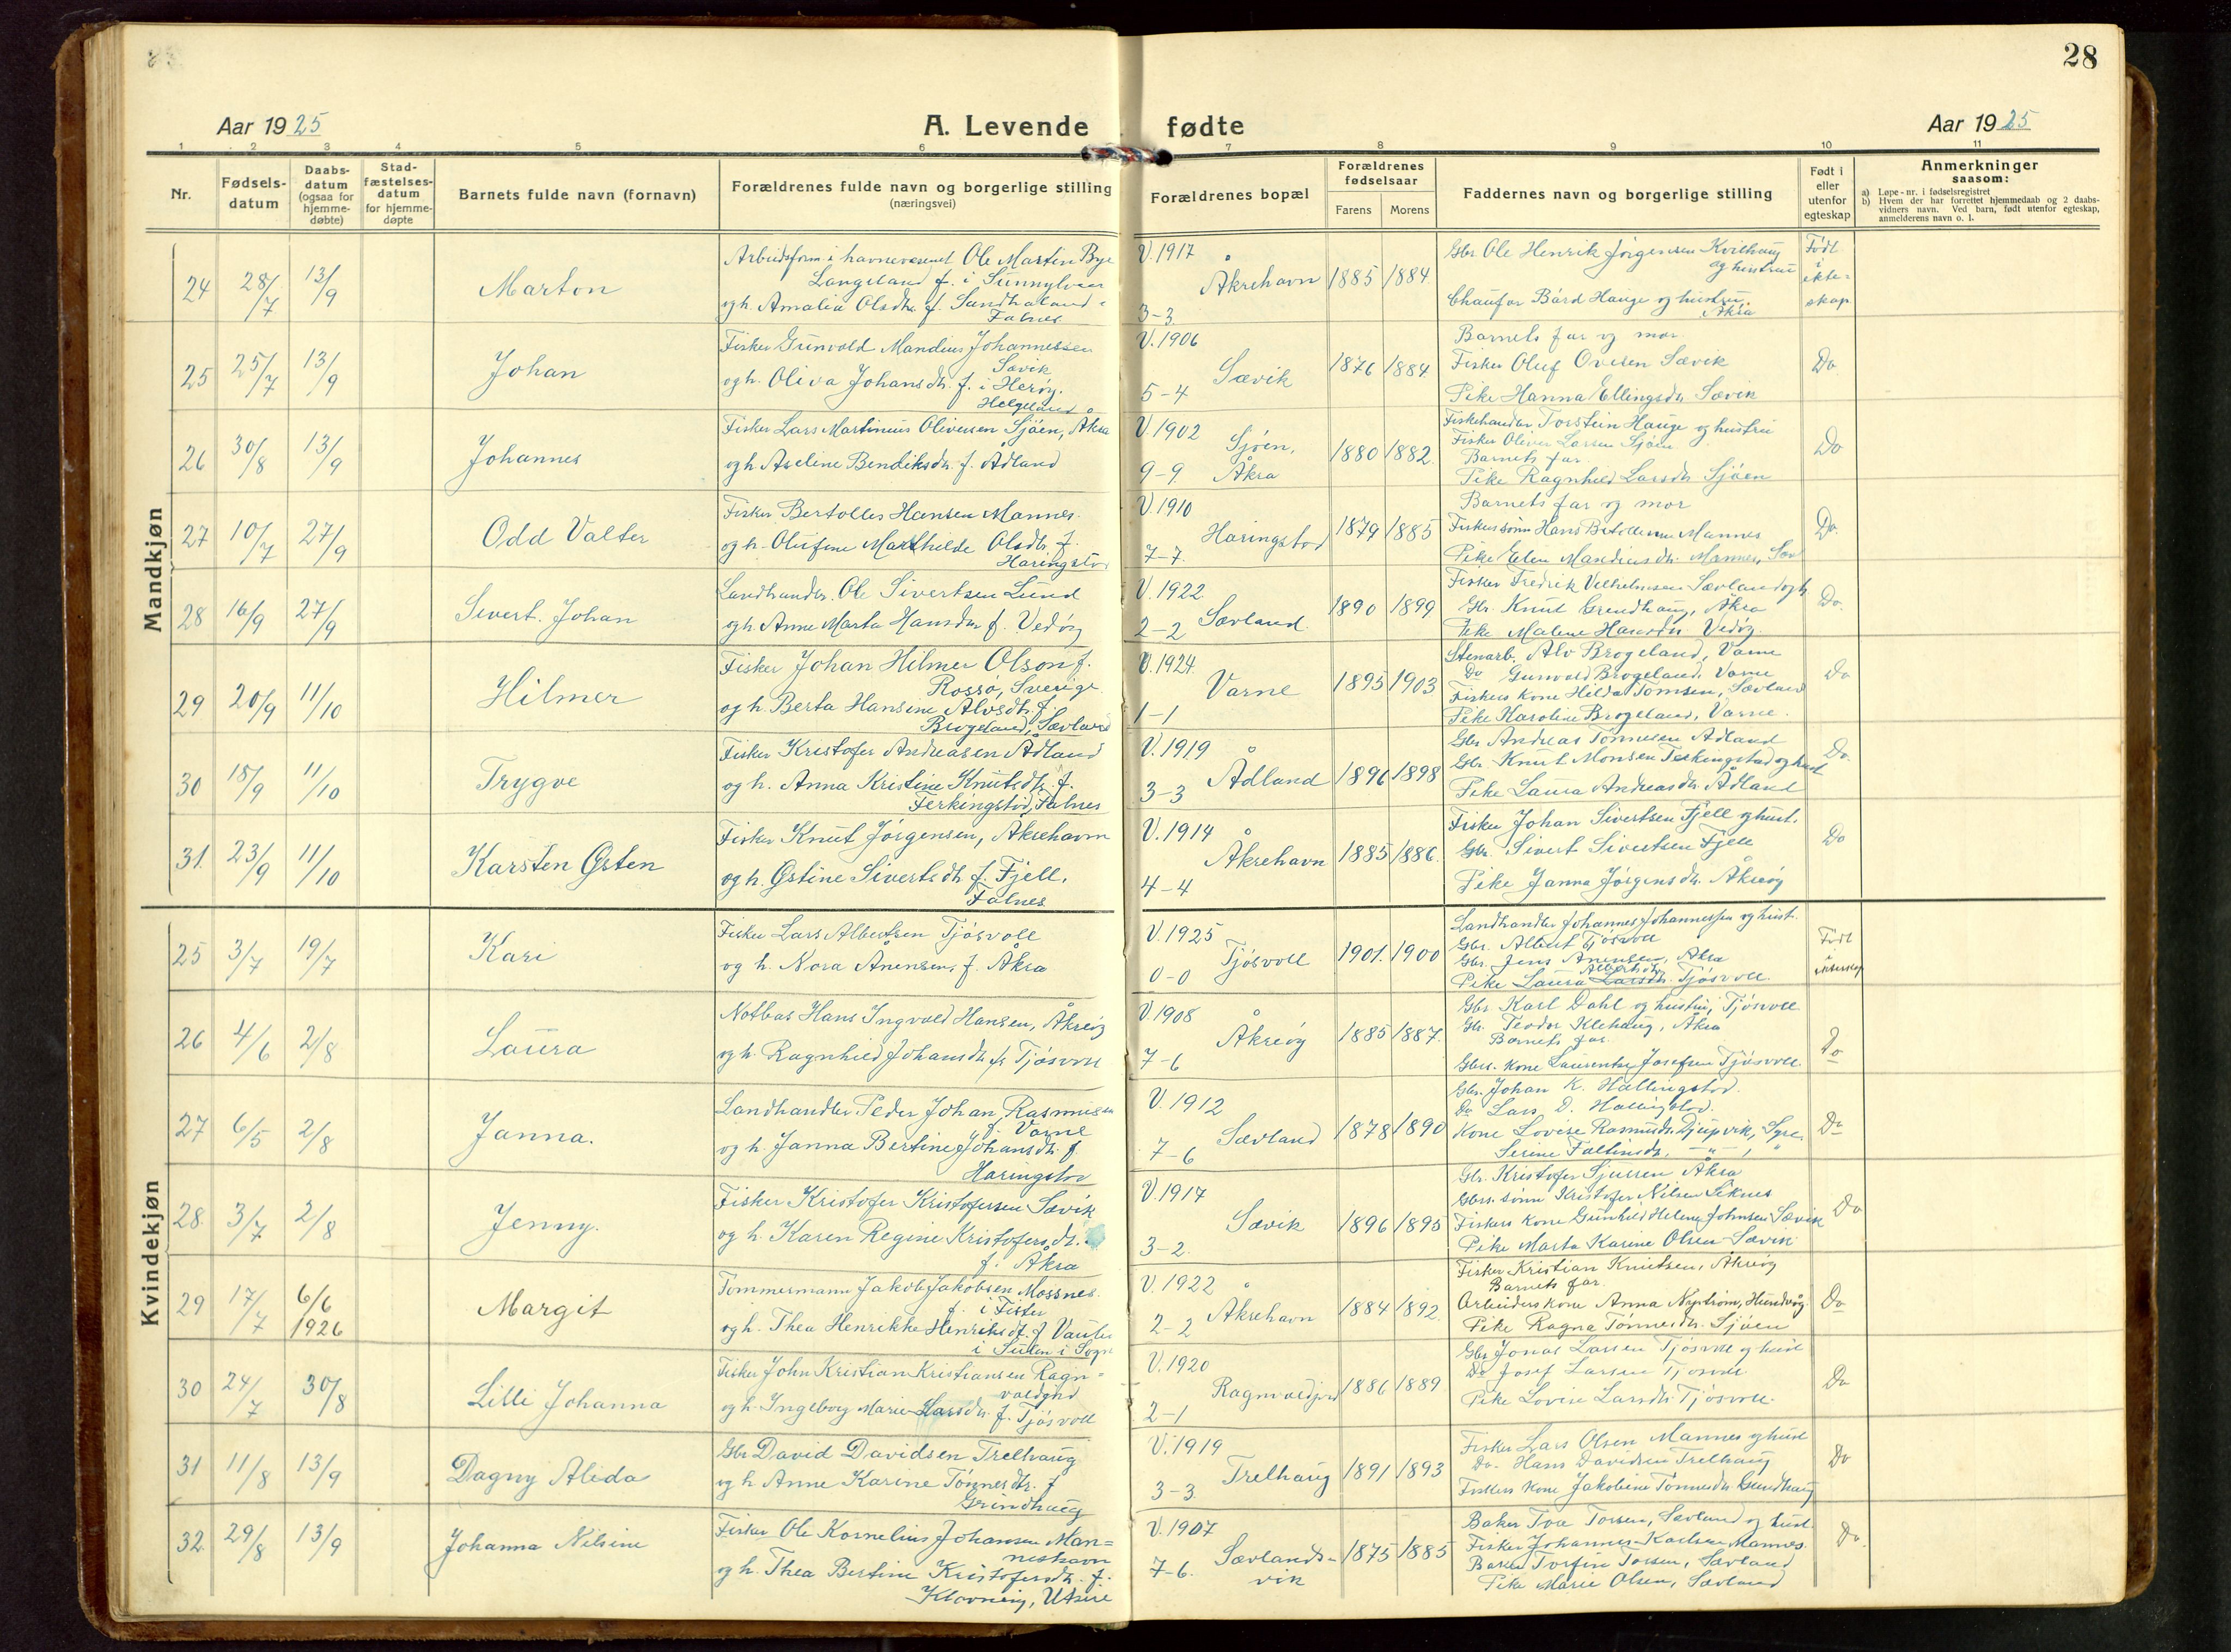 28
Aar 1925
A. Levende fødte
Aar 1925
1 2 3 4 5 6 7 8 9 10 11
Nr.
Fødsels-
datum
Daabs-
datum
(ogsaa for
hjemme-
døbte)
Stad-
fæstelses-
datum
for hjemme-
døpte
Barnets fulde navn (fornavn)
Forældrenes fulde navn og borgerlige stilling
(næringsvei)
Forældrenes bopæl
Forældrenes
fødselsaar
Farens
Morens
Faddernes navn og borgerlige stilling
Født i
eller
utenfor
egteskap
Anmerkninger
saasom:
a) Løpe-nr. i fødselsregistret
b) Hvem der har forrettet hjemmedaab og 2 daabs-
vidners navn. Ved barn, født utenfor egteskap,
anmelderens navn o. l.
Mandkjøn
24 28/7 13/9 Marton
Arbeidsform. i havnevesenet Ole Martin Bye
Langeland f. i Sunnylven
og h. Amalia Olsdtr. f. Sandhaland
Falnes
V. 1917
Åkrehavn
3-3
1885 1884
Gbr. Ole Henrik Jørgensen Kvilhaug
og hustru
Chaufør Bård Hauge og hustru.
Åkra
Født
i
ekte-
skap
25 25/7 13/9 Johan
Fisker Gunvald Mandius Johannessen
Sævik
og h. Oliva Johansdtr. f. i Herøy.
Helgeland
V. 1906
Sævik
5-4
1876 1884
Barnets far og mor
Fisker Oluf Ovesen Sævik
Pike Hanna Ellingsdtr. Sævik
Do
26 30/8 13/9 Johannes
Fisker Lars Martinius Oliversen Sjøen, Åkra
og h. Aseline Bendiksdtr. f. Ådland
V. 1902
Sjøen,
9-9 Åkra
1880 1882
Fiskehandler Torstein Hauge og hustru
Fisker Oliver Larsen Sjøen
Barnets far
Pike Ragnhild Larsdtr. Sjøen
Do
27 10/7 27/9 Odd Valter
Fisker Bertolles Hansen Mannes
og h. Olufine Marthilde Olsdtr. f.
Haringstad
V. 1910
Haringstad
7-7
1879 1885
Barnets far og mor
Fiskersønn Hans Mannes
Pike Elen Mandiusdtr. Mannes,
Do.
28 16/9 27/9 Sivert. Johan
Landhandler. Ole Sivertsen Lund
og h. Anne Marta Hansdtr. f. Vedøy
V. 1922
2-2 Sævland.
1890 1899
Fisker Fredrik Vilhelmsen Sævland og h.
Gbr. Knut Grindhaug, Åkra
Pike Malene Hansdtr. Vedøy.
Do.
29 20/9 11/10 Hilmer
Fisker Johan Hilmer Olson f.
Rossö, Sverige
og h. Berta Hansine Alvsdtr. f.
Brogeland, Sævland
V. 1924
Varne
1-1
1895 1903
Stenarb. Alv Brogeland, Varne
Do Gunvald Brogeland, Varne
Fiskers kone Hilda Tomsen, Sævland
Pike Karoline Brogeland, Varne.
Do
30 18/9 11/10 Trygve
Fisker Kristofer Andreasen Ådland
og h. Anna Kristine Knutsdtr. f.
Ferkingstad, Falnes
V. 1919
Ådland
3-3
1896 1898
Gbr. Andreas Tønnesen Ådland
Gbr. Knut Monsen Ferkingstad og hust
Pike Laura Andreasdtr. Ådland
Do.
31. 23/9 11/10 Karsten Østen
Fisker Knut Jørgensen, Åkrehavn
og h. Østine Sivertsdtr. f. Fjell,
Falnes
V. 1914
Åkrehavn
4-4
1885 1886.
Fisker Johan Sivertsen Fjell og hust.
Gbr. Sivert Sivertsen Fjell
Pike Janna Jørgensdtr. Åkreøy
Do
Kvindekjøn
25 3/7 19/7 Kari
Fisker Lars Albertsen Tjøsvoll
og h. Nora Anensen, f. Åkra
V. 1925
Tjøsvoll
0-0
1901. 1900
Landhandler Johannes Johannessen og hust.
Gbr. Albert Tjøsvoll
Gbr. Jens Anensen, Åkra
Albertsdtr.
Pike Laura Larsdtr. Tjøsvoll.
Født
i
ekteskap
26 4/6 2/8 Laura
Notbas Hans Ingvald Hansen, Åkreøy
og h. Ragnhild Johansdtr. f. Tjøsvoll
V. 1908
Åkreøy
7-6
1885 1887.
Gbr. Karl Dahl og hustru, Tjøsvoll
Gbr. Teodor Klehaug, Åkra
Barnets far.
Gbrs. kone Laurentse Josefsen Tjøsvoll.
Do
27 6/5 2/8 Janna.
Landhandler Peder Johan Rasmussen
f. Varne
og h. Janna Bertine Johansdtr. f.
Haringstad
V. 1912
Sævland
7-6
1878 1890
Gbr. Johan K. Hallingstad.
Do Lars D. Hallingstad.
Kone Lovise Rasmusdtr. Djupvik, Syre.
Serine Faltinsdtr. — " — , "
Do
28 3/7 2/8 Jenny.
Fisker Kristofer Kristofersen Sævik
og h. Karen Regine Kristofersdtr.
f. Åkra
V. 1917
Sævik
3-2
1896 1895
Gbr. Kristofer Sjursen Åkra
Gbrs. sønn Kristofer Nilsen Liknes
Fiskers kone Gunhild Helene Johnsen Sævik
Pike Marta Karine Olsen Sævik
Do
29 17/7 6/6 1926 Margit
Tømmermann Jakob Jakobsen Mossnes
f. i Fister
og h. Thea Henrikke Henriksdtr. f.
i Sulen i Sogn
V. 1922
Åkrehavn
2-2
1884 1892
Fisker Kristian Knutsen, Åkreøy
Barnets far.
Arbeiders kone Anna Nystrøm, Hundvåg.
Pike Ragna Tønnesdtr. Sjøen
Do
30 24/7 30/8 Lilli Johanna
Fisker John Kristian Kristiansen Ragn-
valdjord
og h. Ingeborg Marie Larsdtr. f. Tjøsvoll
V. 1920
Ragnvaldjord
2-1
1886 1889
Gbr. Jonas Larsen Tjøsvoll og hust
Do Josef Larsen Tjøsvoll
Pike Lovise Larsdtr. Tjøsvoll.
Do
31 11/8 13/9 Dagny Alida
Gbr. David Davidsen Trelhaug
og h. Anne Karine Tønnesdtr. f.
Grindhaug
V. 1919
Trelhaug
3-3.
1891 1893
Fisker Lars Olsen Mannes og hust
Do. Hans Davidsen Trelhaug
Fiskers kone Jakobine Tønnesdtr. Grindhaug
Do
32. 29/8 13/9 Johanna Nilsine
Fisker Ole Kornelius Johansen Man-
neshavn
og h. Thea Bertine Kristofersdtr. f.
Klovning, Utsire
V. 1907
Sævlands-
7-6. vik
1875 1885
Baker Tore Torsen, Sævland og hust.
Fisker Johannes Karlsen Mannes.
Baker Torfin Torsen, Sævland
Pike Marie Olsen, Sævland
Do